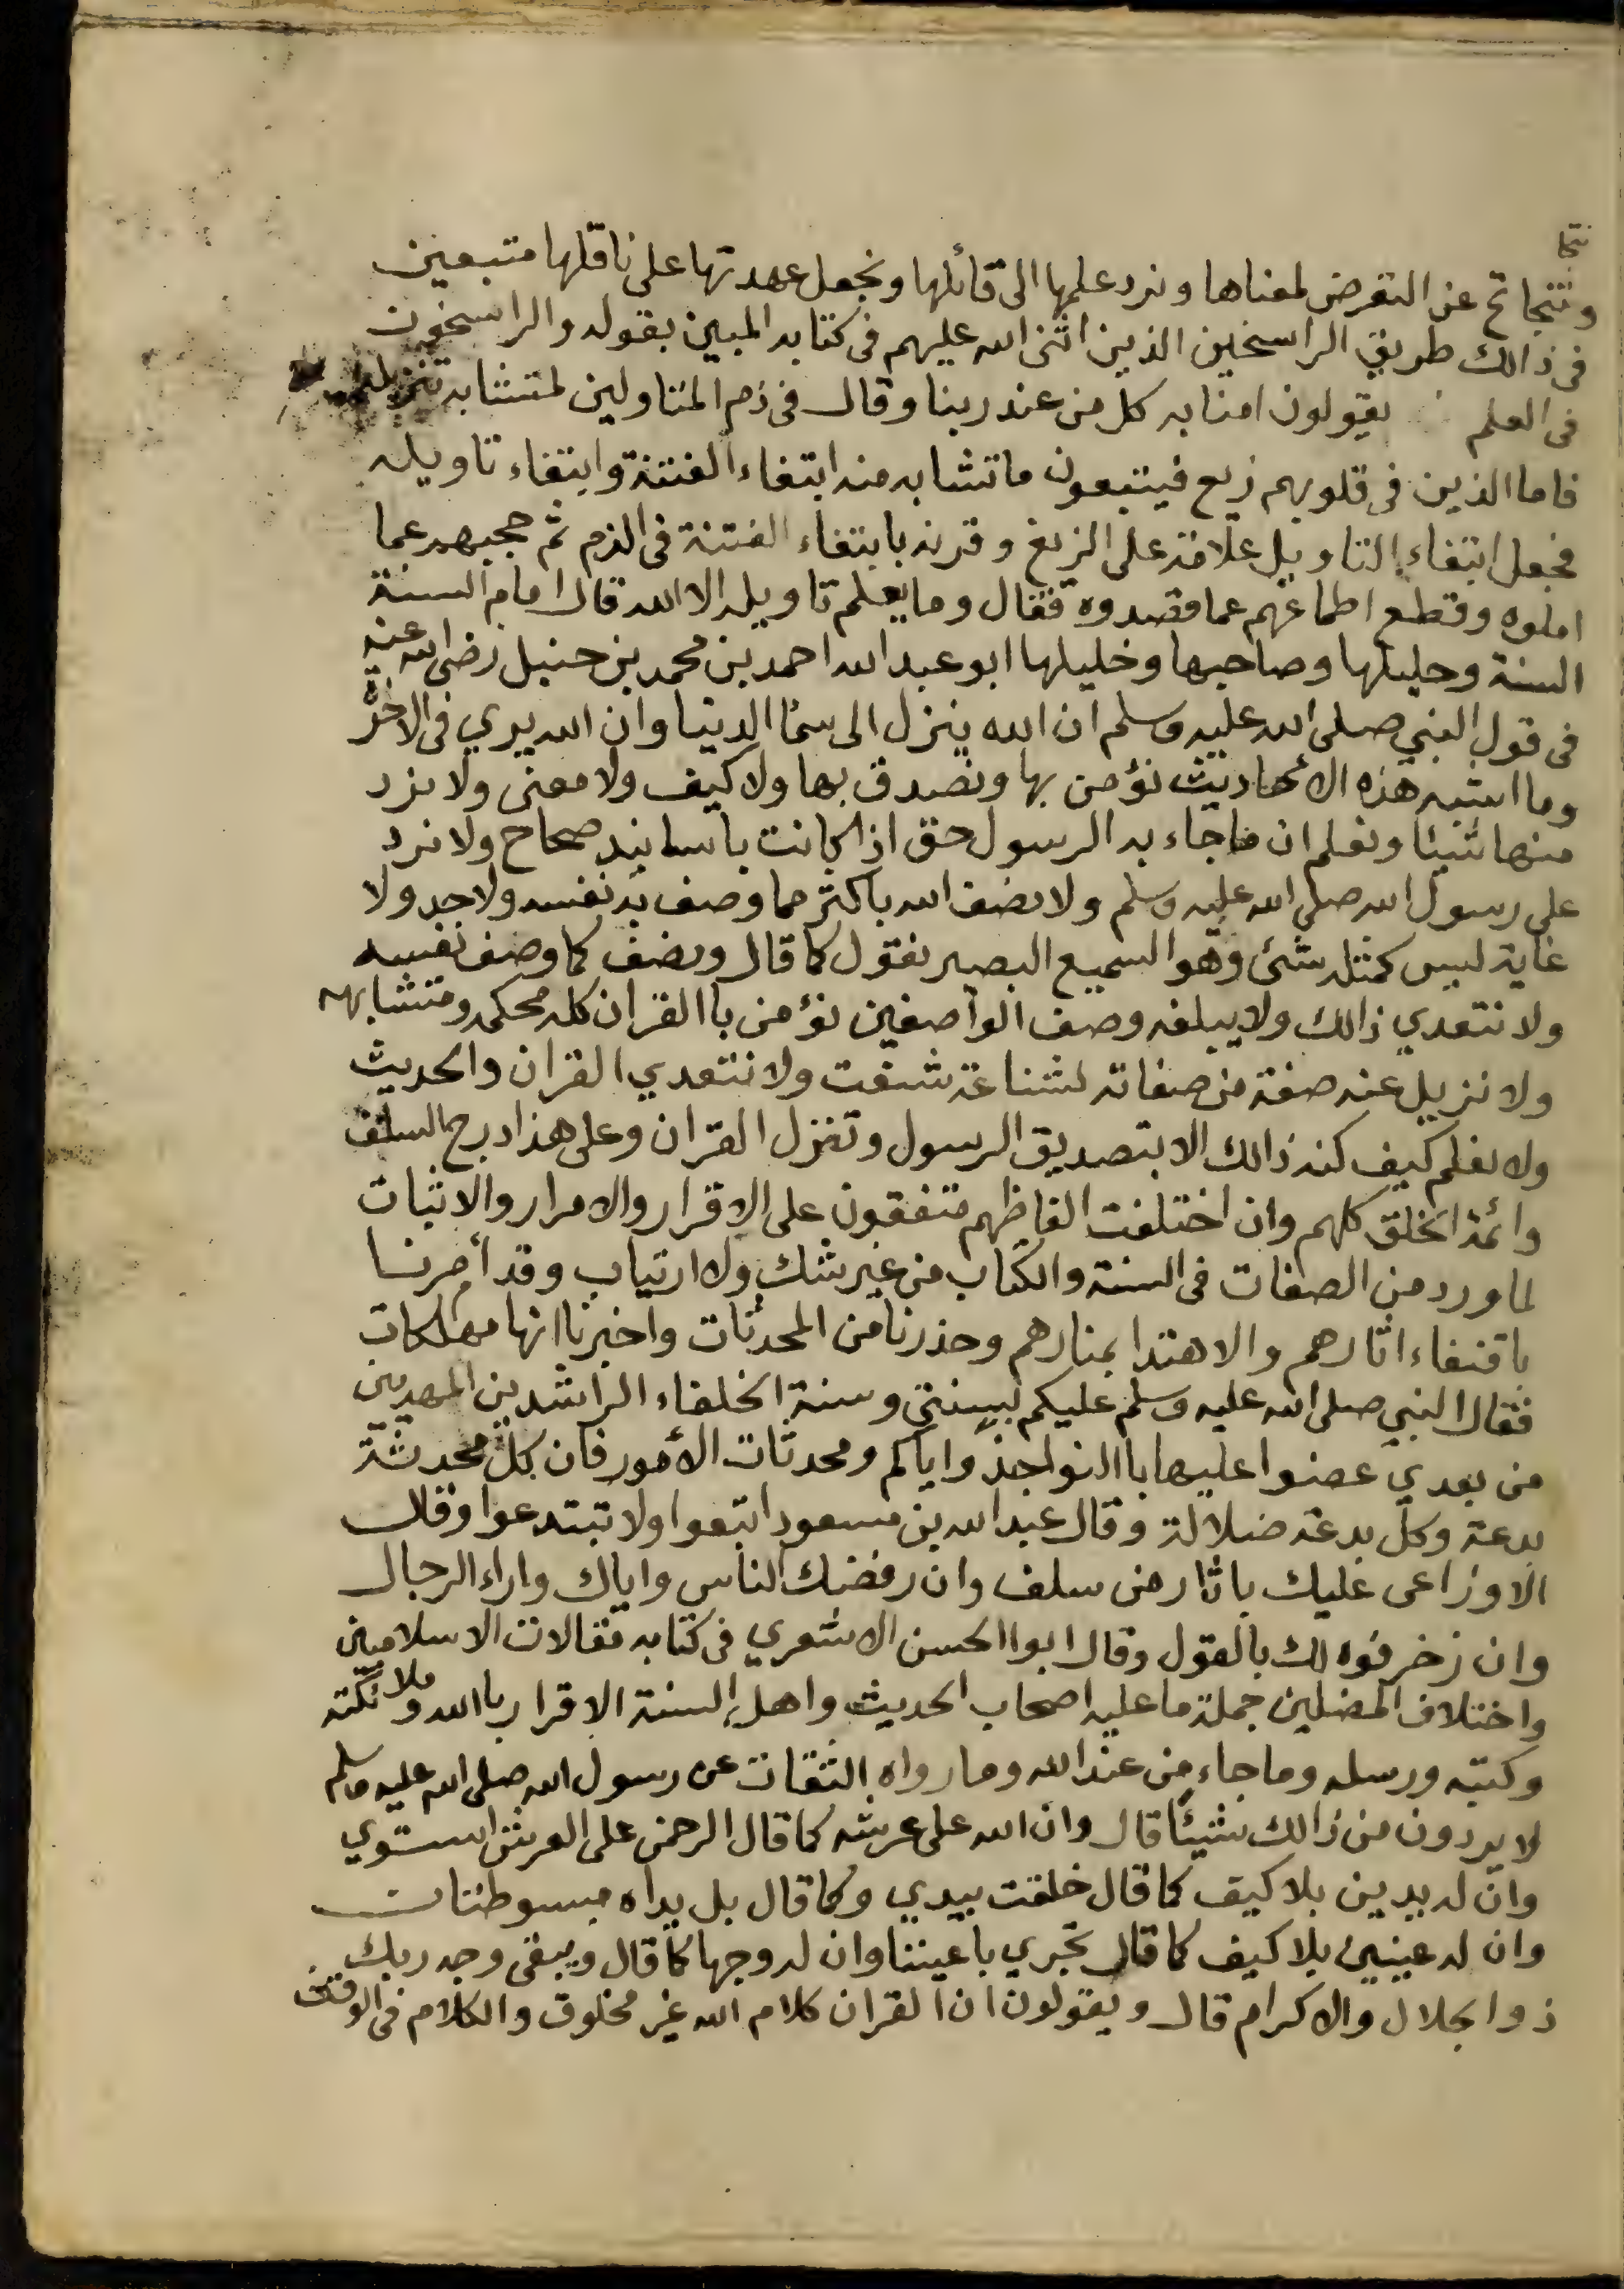 نتحا
ونتجاتح عن التعرض لمعناها ونرد علمها الى قائلها ونجعل عهدتها على ناقلها متبعين
فى ذالك طريق الراسخين الذين اثنى الله عليهم فى كتابه المبين بقوله والراسخون
فى العلم يقولون امنا به كل من عند ربنا وقال فى ذم المتاولين لمتشابه تنزيله
فاما الذين فى قلوبهم زيع فيتبعون ما تشابه منه ابتغاء الفتنة وابتغاء تاويله
فجعل ابتغاء التاويل علامة على الزيغ وقرنه بابتغاء الفتنة فى الذم ثم حجبهم عما
املوه وقطع اطماعهم عما قصدوه فقال وما يعلم تاويله الا الله قال امام السنة
السنة وجليلها وصاحبها وخليلها ابو عبد الله احمد بن محمد بن حنبل رضى الله عنه
فى قول النبي صلى الله عليه وسلم ان الله ينزل الى سما الدنيا وان الله يري فى الاخرة
وما اشبه هذه الأحاديث نؤمن بها ونصدق بها ولا كيف ولا معنى ولا نرد
منها شيئا ونعلم ان ما جاء به الرسول حق اذا كانت باسانيد صحاح ولا نرد
على رسول الله صلى الله عليه وسلم ولا نصف الله باكثر مما وصف به نفسه ولا حد ولا
غاية ليس كمثله شئ وهو السميع البصير نقول كما قال ونصف كما وصف نفسه
ولا نتعدي ذالك ولا يبلغه وصف الواصفين نؤمن باالقران كله محكمه ومتشابهه
ولا نزيل عنه صفة من صفاته لشناعة شنعت ولا نتعدي القران والحديث
ولا نعلم كيف كنه ذالك الا بتصديق الرسول وتنزل القران وعلى هذا درج السلف
وائمة الخلق كلهم وان اختلفت الفاظهم متفقون على الاقرار والامرار والاثبات
لما ورد من الصفات فى السنة والكتاب من غير شك ولا ارتياب وقد أمرنا
باقتفاء اثارهم والاهتدا بمنارهم وحذرنا من المحدثات واخبرنا انها مهلكات
فقال النبي صلى الله عليه وسلم عليكم بسنتي وسنة الخلفاء الراشدين المهديين
من بعدي عضوا عليها باالنواجذ واياكم ومحدثات الأمور فان كل محدثة
بدعة وكل بدعة ضلالة وقال عبد الله بن مسعود اتبعوا ولا تبتدعوا وقال
الاوزاعى عليك باثار من سلف وان رفضك الناس واياك واراء الرجال
وان زخرفوه لك بالقول وقال ابوا الحسن الاشعري فى كتابه مقالات الاسلاميين
واختلاف المضلين جملة ما عليه اصحاب الحديث واهل السنة الاقرار باالله وملائكته
وكتبه ورسله وما جاء من عند الله وما رواه الثقات عن رسول الله صلى الله عليه وسلم
لا يردون من ذالك شيئا قال وان الله على عرشه كما قال الرحمن على العرش استوي
وان له يدين بلا كيف كما قال خلقت بيدي وكما قال بل يداه مبسوطتان
وان له عينين بلا كيف كما قال تجري باعيننا وان له وجها كما قال ويبقى وجه ربك
ذوا الجلال والاكرام قال ويقولون ان القران كلام الله غير مخلوق والكلام فى الوقف